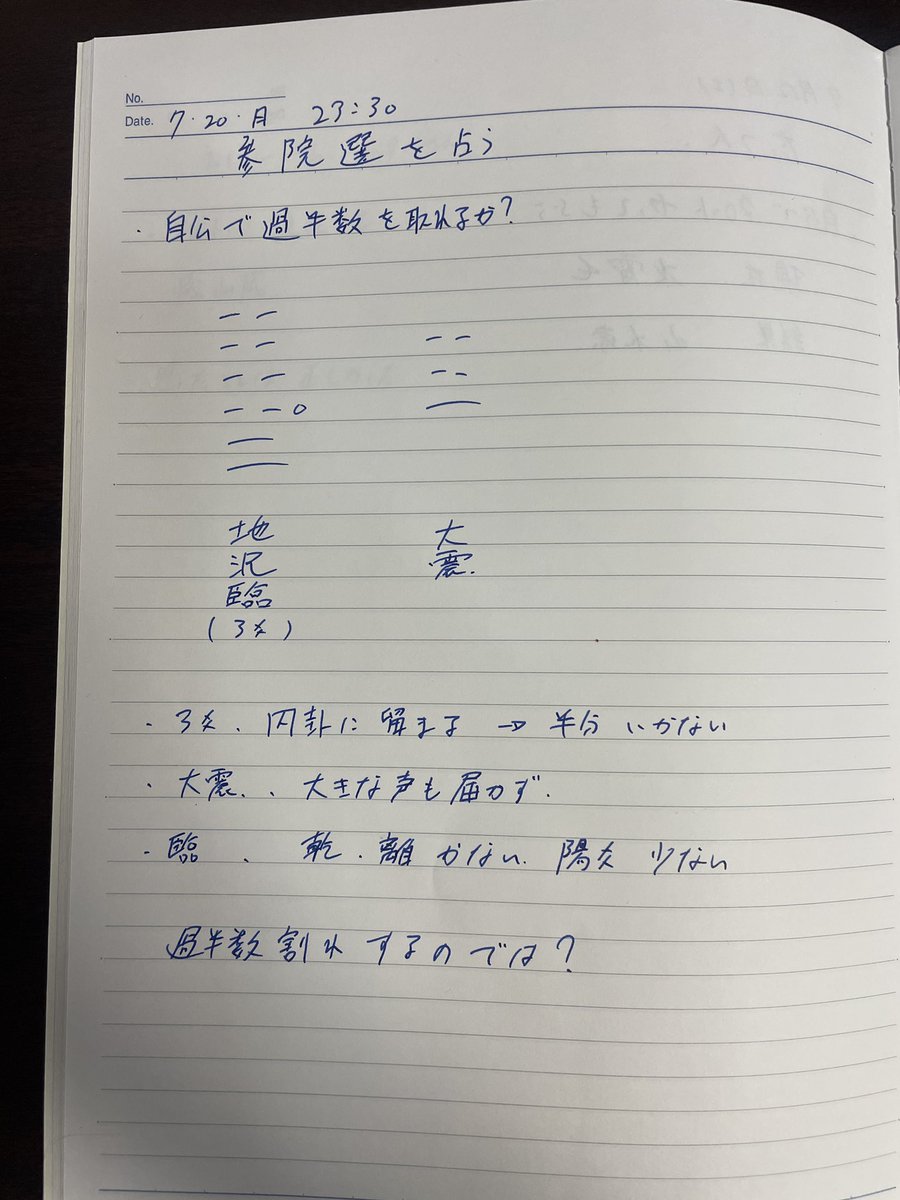 No.
Date. 7・20・月 23:30
参院選を占う
・自公で過半数を取れるか?
地 大
沢 震.
臨
(3爻)
・3爻. 内卦に留まる → 半分いかない
・大震.、大きな声も届かず.
・臨 、 乾.離がない. 陽爻少ない
過半数割れするのでは?